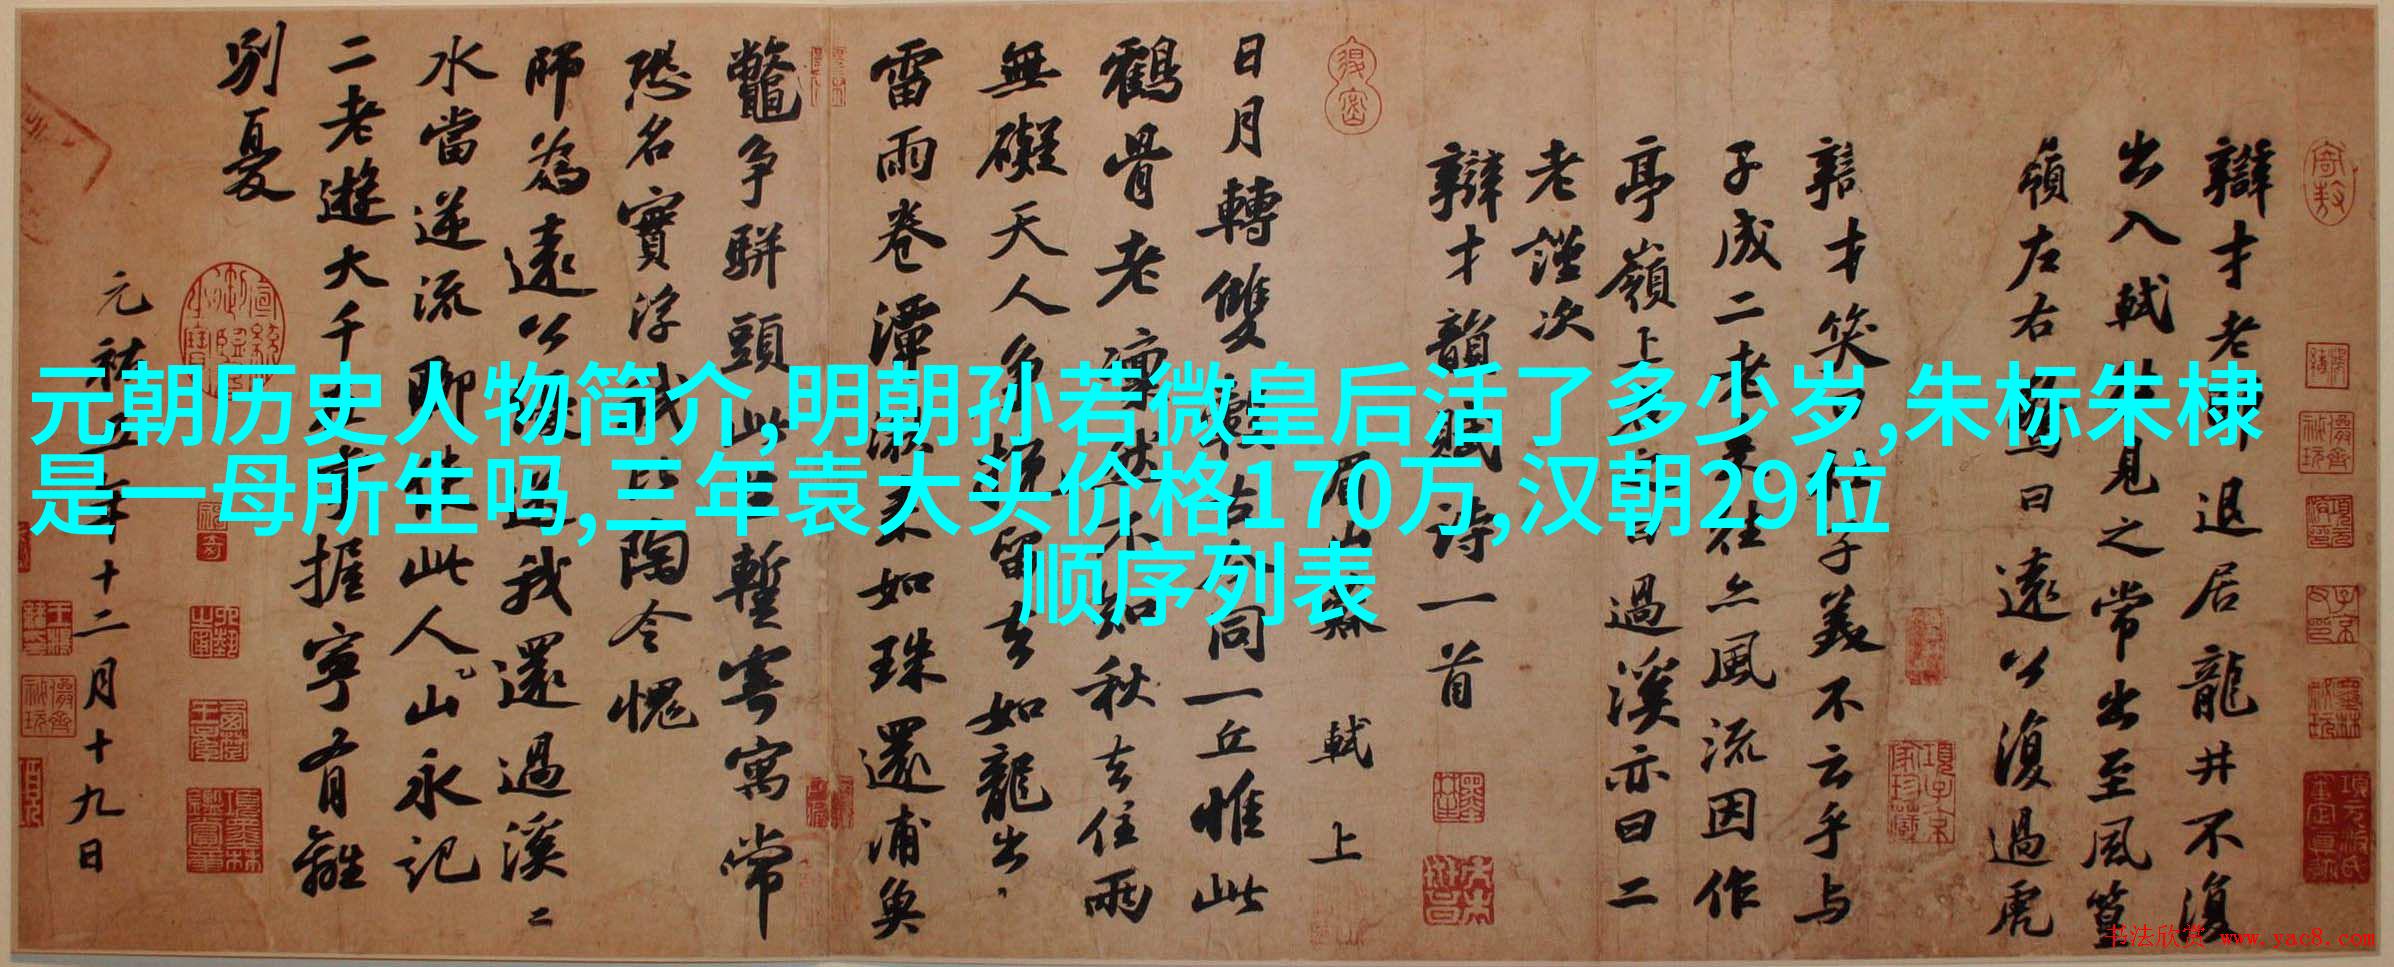 元朝历史人物简介,明朝孙若微皇后活了多少岁,朱标朱棣
是一母所生吗,三年袁大头价格170万,汉朝29位
顺序列表
辯才老師退居龍井不復
出入軾往見之常出至風篁
嶺左右驚曰遠公復過虎
辯才笑曰杜子美不云乎與
子成二老來往亦風流因作
亭嶺上名曰過溪亦曰二
老謹次
辯才韻賦詩一首
眉山蘇軾上
日月轉雙轂古今同一丘惟此
鶴骨老凜然不知秋去住兩
無礙天人爭挽留去如龍出
雷雨卷潭湫來如珠還浦魚
鼈爭駢頭此生暫寄寓常
恐名實浮我比陶令愧
師為遠公優送我還過溪二
水當逆流聊使此人山永記
二老遊大千在掌握寧有離
別憂
元祐五年十二月十九日
书法欣赏 www.yac8.com